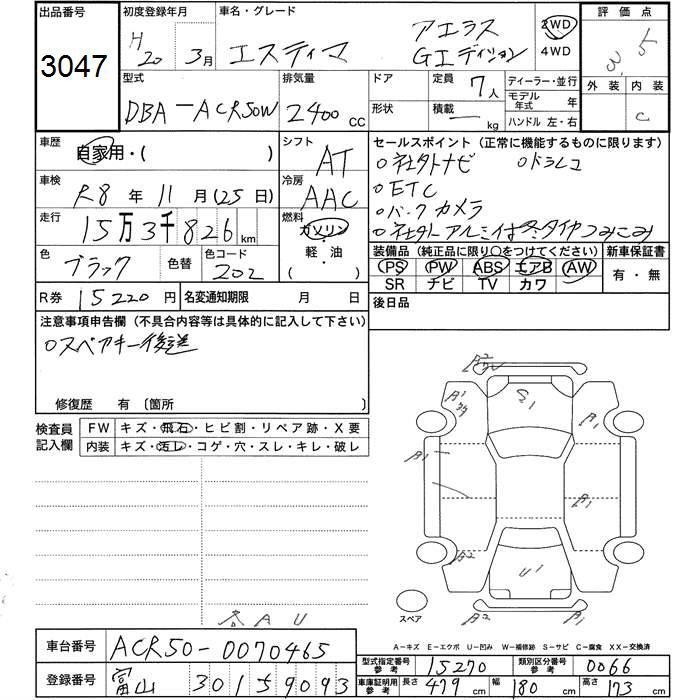 出品番号 初度登録年月 車名・グレード 評価点
3047
H20 3月 エスティマ アエラス 2WD
GIエディション 4WD
3.5
型式 排気量 ドア 定員 7人 ディーラー・並行 外装 内装
DBA-ACR50W 2400cc 形状 積載 kg モデル年式 年 C
ハンドル 左・右
車歴 自家用・( ) シフト AT セールスポイント (正常に機能するものに限ります)
○社外ナビ ○ドラレコ
車検 R8年11月(25日) 冷房 AAC ○ETC
○バックカメラ
走行 15万3千826km 燃料 ガソリン ○社外アルミ付冬タイヤつみこみ
軽・油
( )
色 ブラック 色替 色コード 202
装備品 (純正品に限り○をつけてください) 新車保証書
PS PW ABS エアB AW 有・無
SR ナビ TV カワ
R券 15220円 名変通知期限 月 日 後日品
注意事項申告欄 (不具合内容等は具体的に記入して下さい)
○スペアキー後送
修復歴 有 〔箇所 〕
検査員記入欄 FW キズ・飛石・ヒビ割・リペア跡・X要
内装 キズ・汚レ・コゲ・穴・スレ・キレ・破レ
A2
S1
A1
A1
A1
A1
A2
U1
A2
A1
スペア
A A U
A-キズ E-エクボ U-凹ミ W-補修跡 S-サビ C-腐食 XX-交換済
車台番号 ACR50-0070465
型式指定番号 参考 15270 類別区分番号 参考 0066
登録番号 富山 301 5 9093
車庫証明用 参考 長さ 479cm 幅 180cm 高さ 173cm